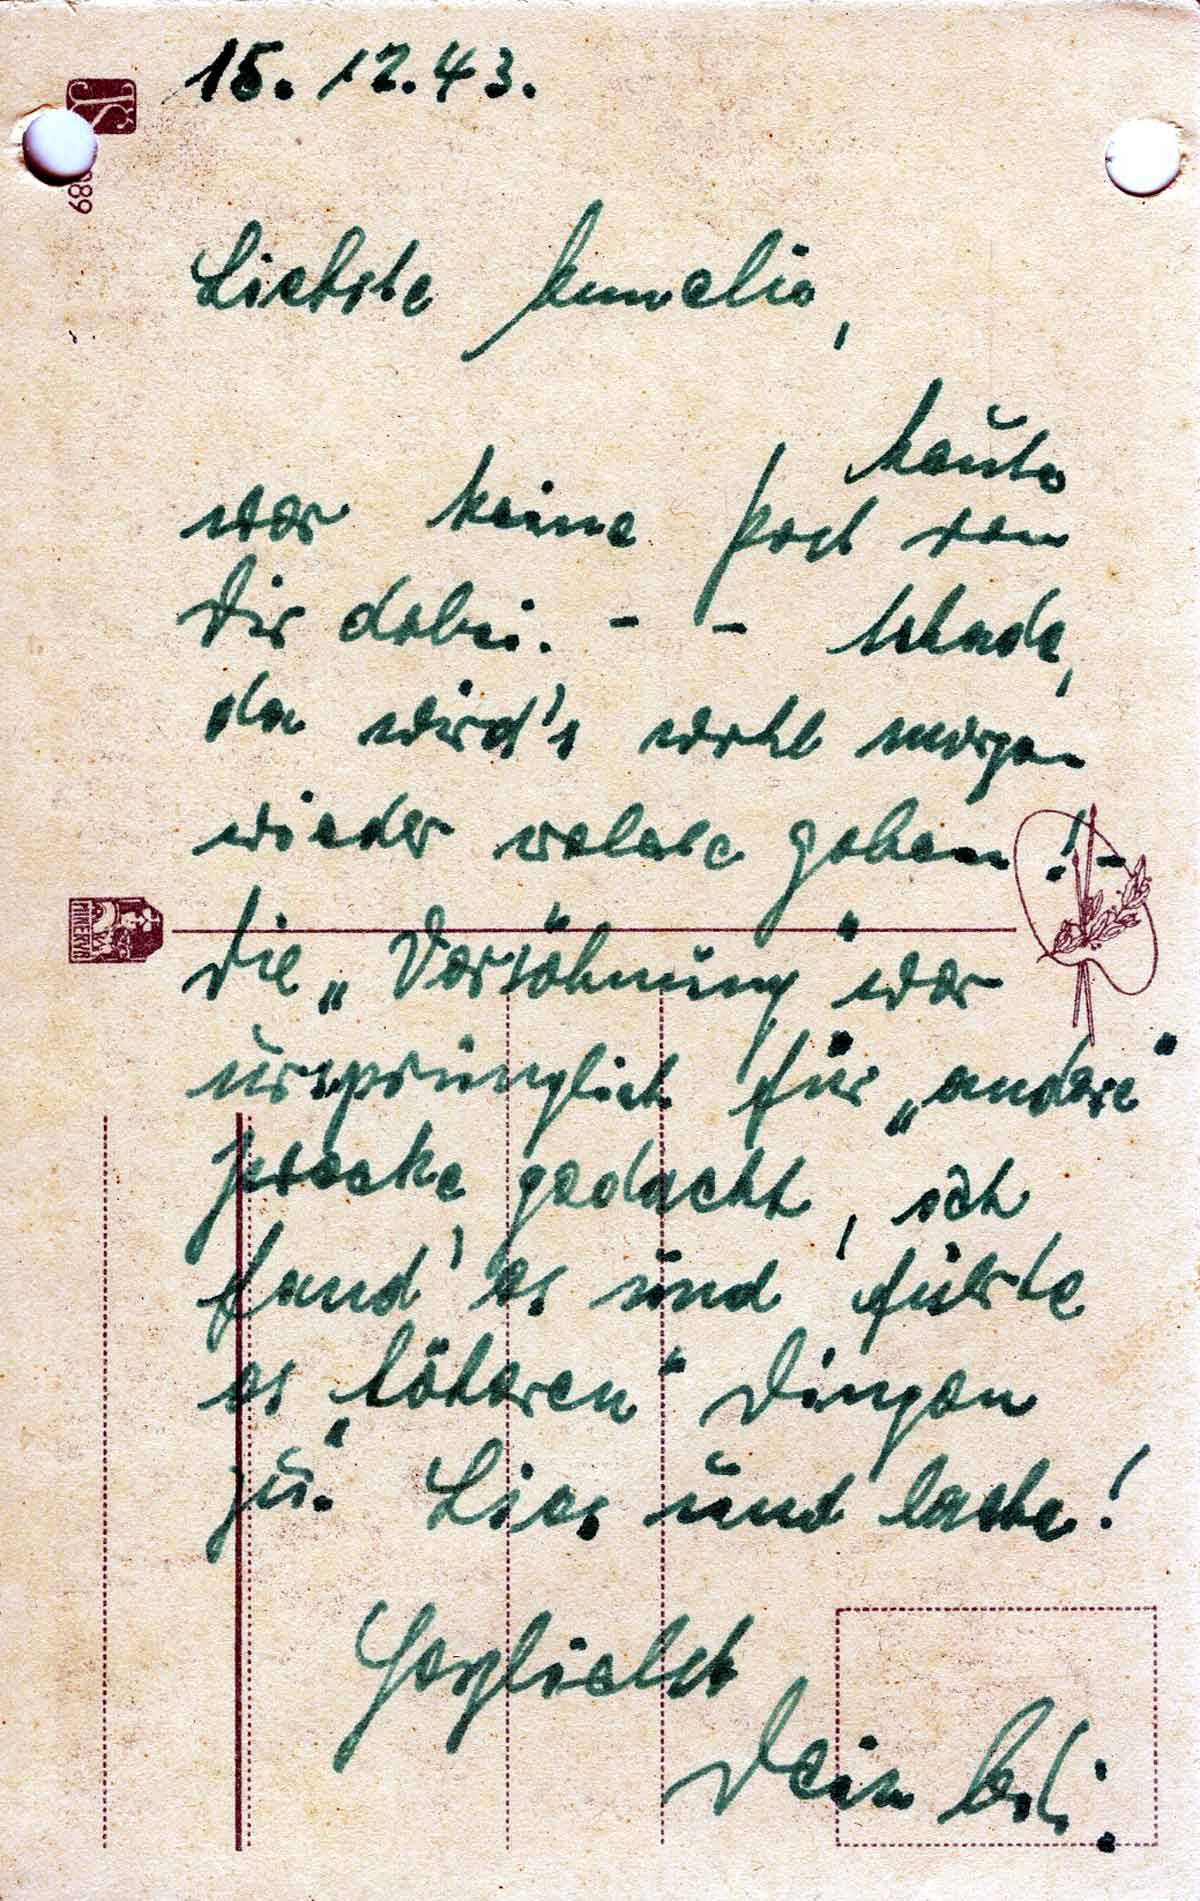 15. 12. 43.
689
Liebste Annelie,
heute
war keine Post von
Dir dabei. – – Schade,
da wird's wohl morgen
wieder welche geben! –
MINERVA
Die „Versöhnung" war
ursprünglich für „andere"
Zwecke gedacht, ich
fand' es und führte
es „höheren" Dingen
zu. Lies und lache!
Herzlichst
Dein